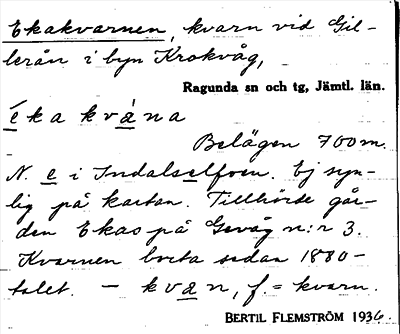 Ekakvarnen, kvarn vid Gil-
lerån i byn Krokvåg,
Ragunda sn och tg, Jämtl. län.
éka kvàna
Belägen 700 m.
N. e i Indalselfven. Ej syn-
lig på kartan. Tillhörde går-
den Ekas på Gevåg n:r 3.
Kvarnen borta sedan 1880-
talet. – kvan, f. = kvarn.
BERTIL FLEMSTRÖM 1936.